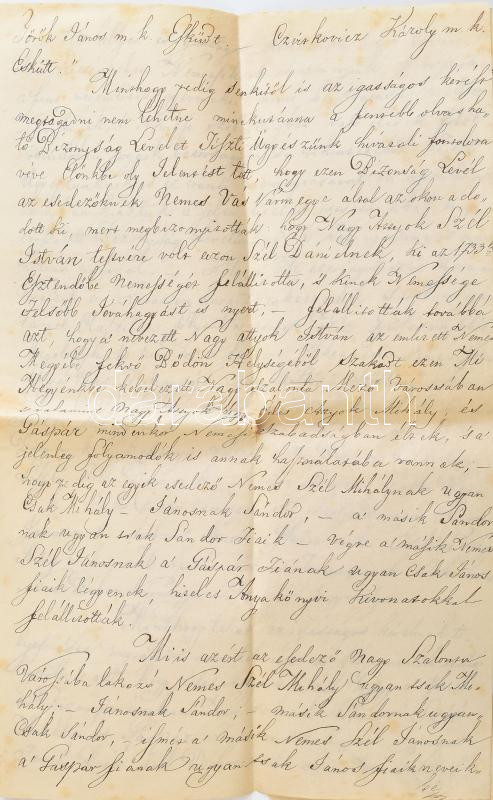 Török János m. k. Esküdt. — Czvirkovicz Károly m. k.
Eskütt."
Minthogy pedig senkitől is az igasságos kérést
megtagadni nem lehetne minekutánna a fentebb olvasha-
tó Bizonyság Levelet Tiszti Ügyészünk hivatali fontolóra
véve Előnkbe oly Jelentést tett, hogy ezen Bizonság Levél
az esedezőknek Nemes Vas Vármegye által az okon ado-
dott ki, mert megbizonyították: hogy Nagy Attyok Szél
István testvére volt azon Szél Dánielnek, ki az 1733
Esztendőbe Nemességét felállította, s kinek Nemessége
Felsőbb Jóváhagyást is nyert, — felállították továbbá
azt, hogy a nevezett Nagy attyok István az említett Nemes
Megyébe fekvő Bödön Helységéből szakadt ezen Mi
Megyénkbe kebelezett Nagy Szalonta Mező Városában
valamint Nagy Attyok úgy Édes Attyok Mihály, és
Gáspár mindenkor Nemesi szabadságban éltek, s a
jelenleg folyamodók is annak használatába vannak, —
hogy pedig az egyik esedező Nemes Szél Mihálynak ugyan
Csak Mihály — Jánosnak Sándor, — a' másik Sándor
nak ugyan tsak Sándor Fiaik — végre a' másik Nemes
Szél Jánosnak a' Gáspár Fiának ugyan Csak János
fiaik légyenek, hiteles Anyakönyvi Kivonatokkal
felállították.
Mi is azért az esedező Nagy Szalonta
Várossába lakozó Nemes Szél Mihály ugyan tsak Mi-
hály. — Jánosnak Sándor, — másik Sándornak ugyan-
Csak Sándor, — ismét a' másik Nemes Szél Jánosnak
a' Gáspár fiának ugyan tsak János fiaik neveik-
darabanth